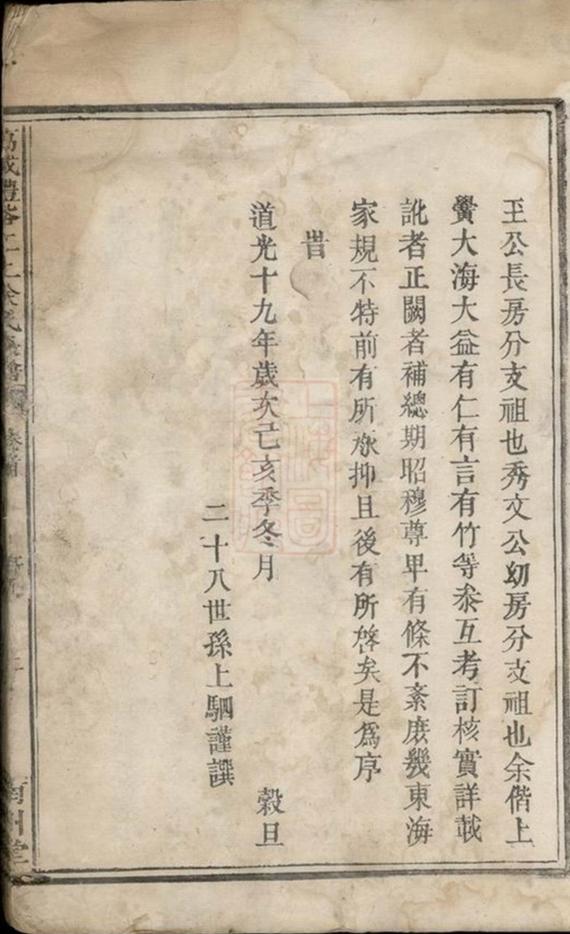 玉公長房分支祖也秀文公幼房分支祖也余偕上
黌大海大益有仁有言有竹等叅互考訂核實詳載
訛者正闕者補總期昭穆尊卑有條不紊庶幾東海
家規不特前有所承抑且後有所啓矣是爲序
旹
道光十九年歲次己亥季冬月 穀旦
二十八世孫上駟謹譔